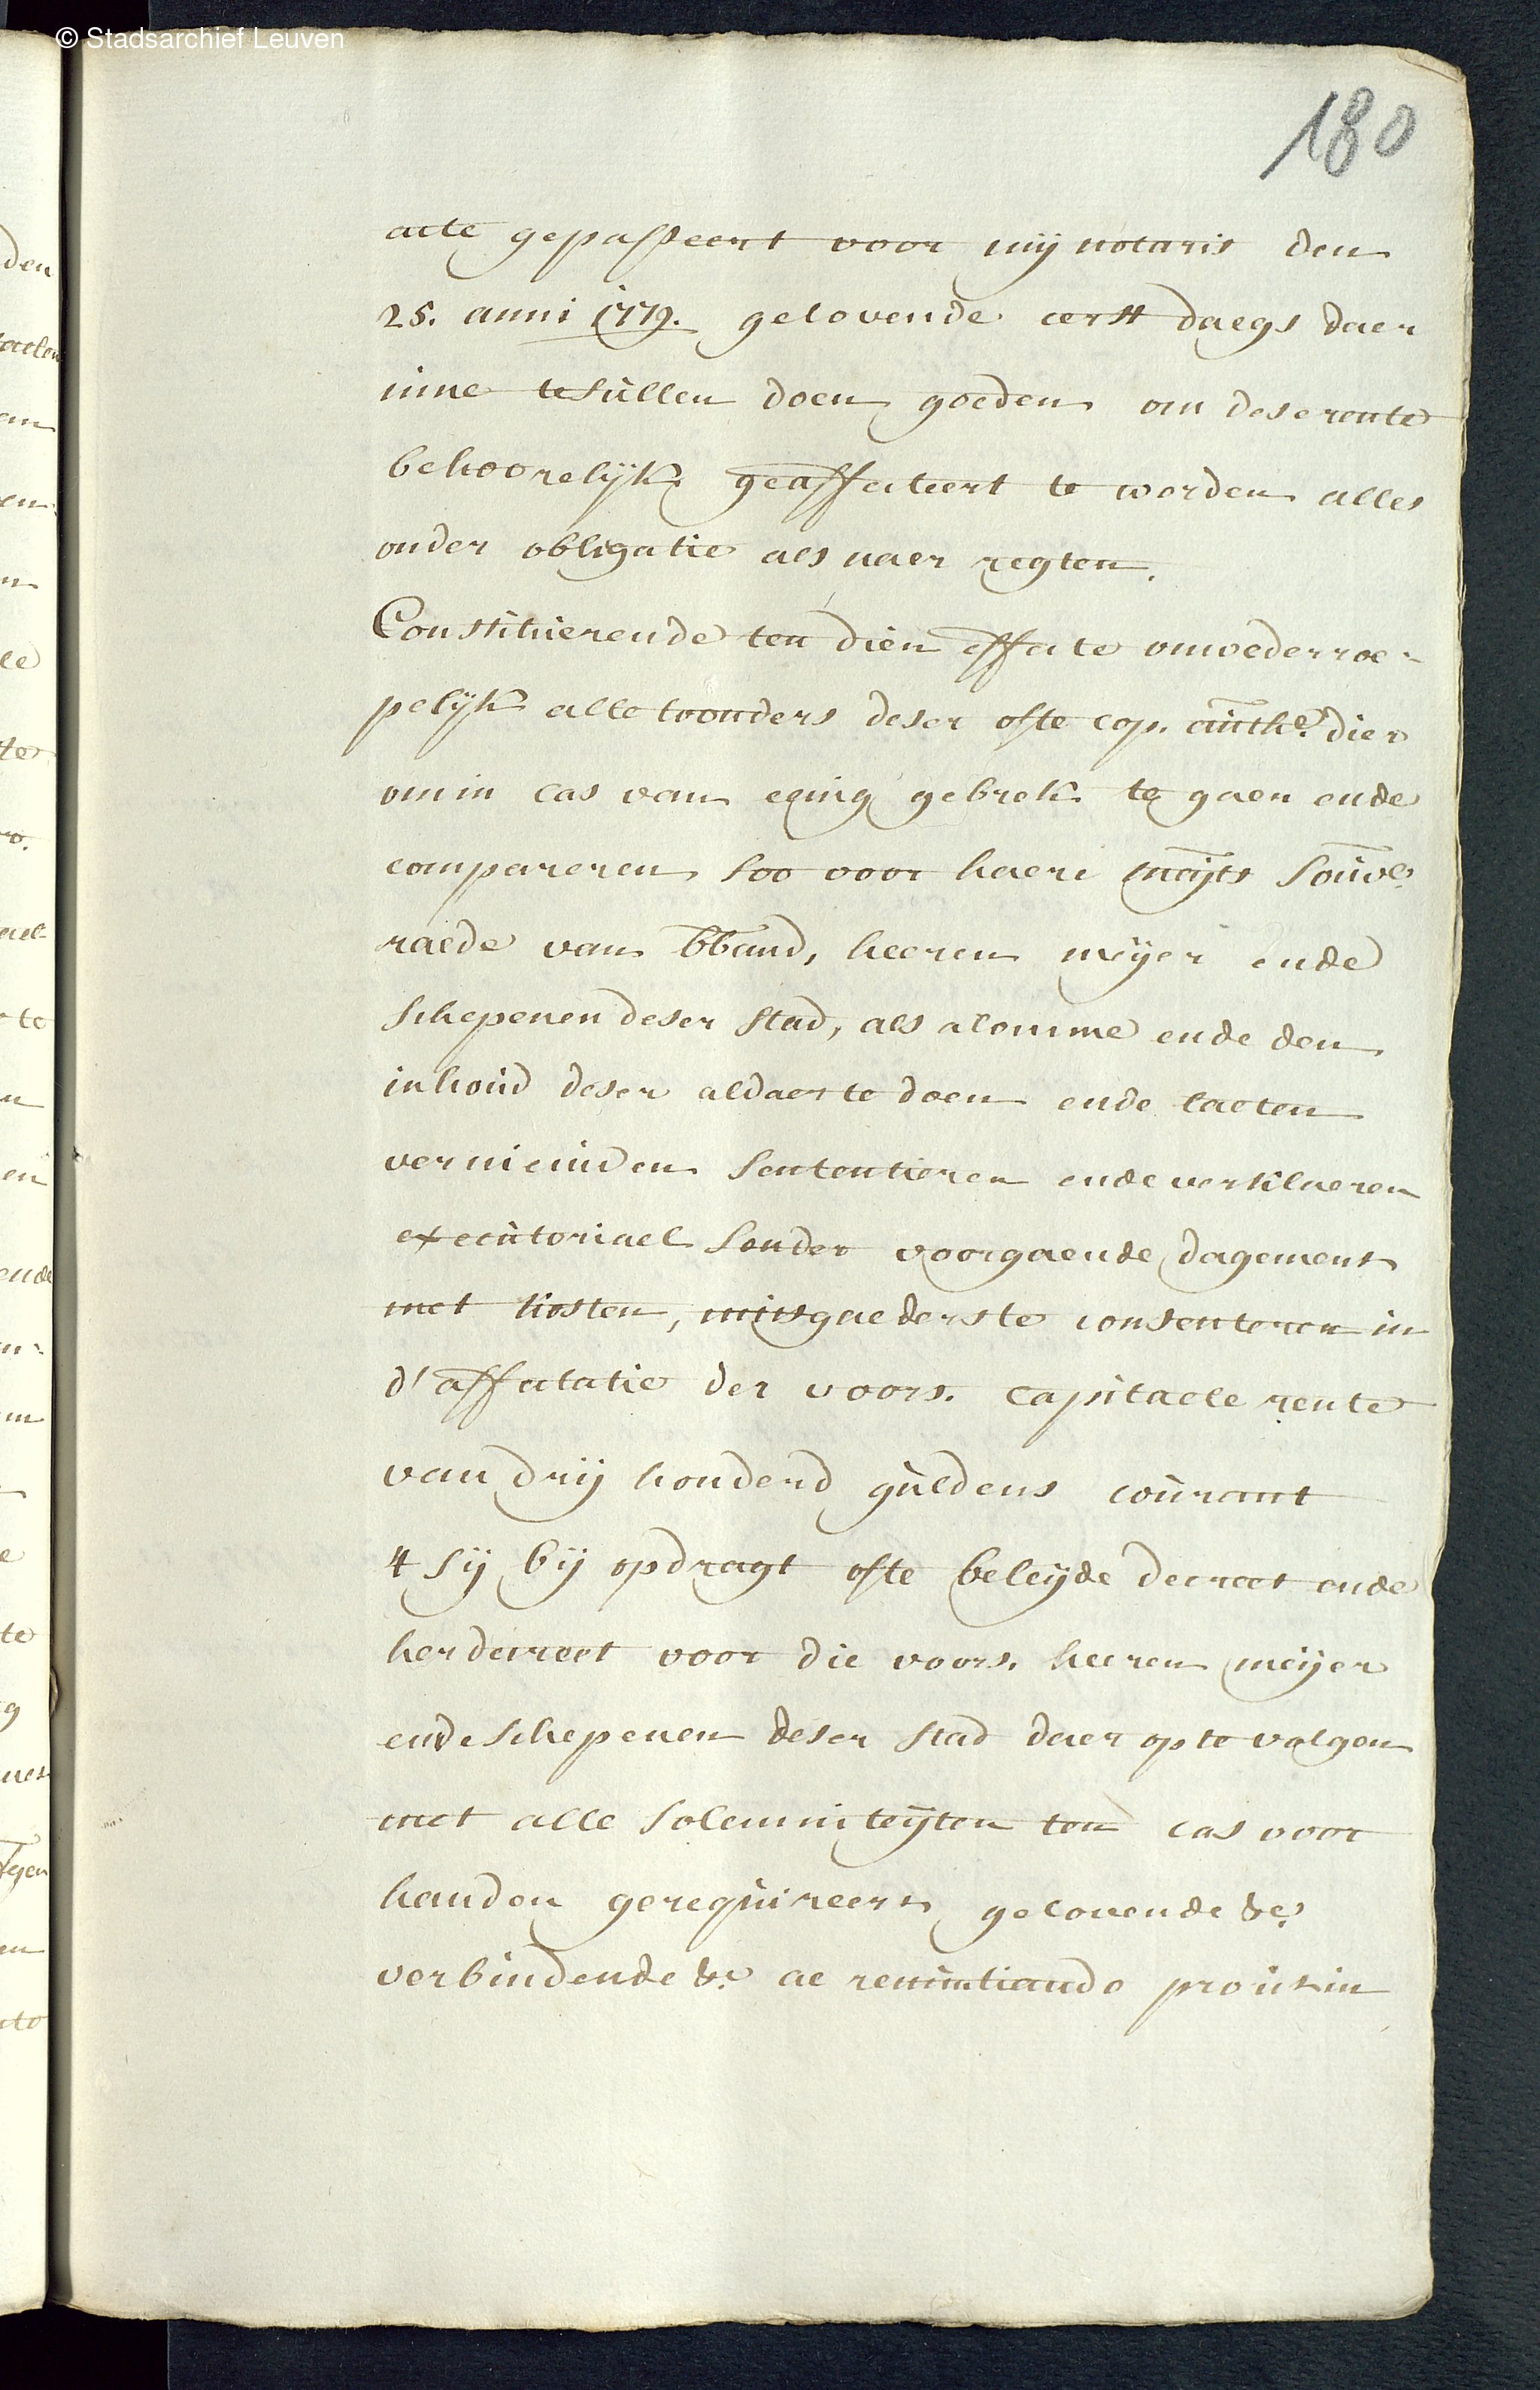 © Stadsarchief Leuven
180
acte gepasseert voor mij notaris den
25. anni 1779. gelovende eerst daegs daer
inne te sullen doen goeden om dese rente
behoorelijk geaffecteert te worden alles
onder obligatie als naer regten.
Constituerende ten dien effecte onwederroe-
pelijk alle toonders deser ofte cop. authe. dier
om in cas van eenig gebrek te gaen ende
compareren soo voor haere mayts souve.
raede van bband, heeren meyer ende
schepenen deser stad, als alomme ende den
inhoud deser aldaer te doen ende laeten
vernieuwen sententieren ende verklaeren
executoriael sonder voorgaende dagement
met kosten, mitsgaeders te consenteren in
d'affectatie der voors. capitaele rente
van drij honderd guldens courant
't sij bij opdragt ofte beleyde decreet ende
herdecreet voor die voors. heeren meijer
ende schepenen deser stad daer op te volgen
met alle solemniteyten ten cas voor
handen gerequireert gelovende &c.
verbindende &c. ac renuntiando prout in